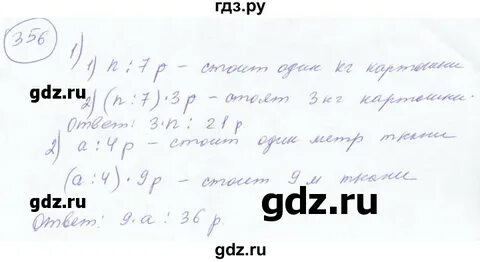 гдз.ру
356
1)
1) n : 7 р – стоит один кг картошки
gdz.ru
2) (n : 7) · 3 р – стоят 3 кг картошки.
Ответ: 3 · n : 21 р
gdz.ru
2) a : 4 р – стоит один метр ткани
(a : 4) · 9 р – стоит 9 м ткани
gdz.ru
Ответ: 9 · a : 36 р
gdz.ru